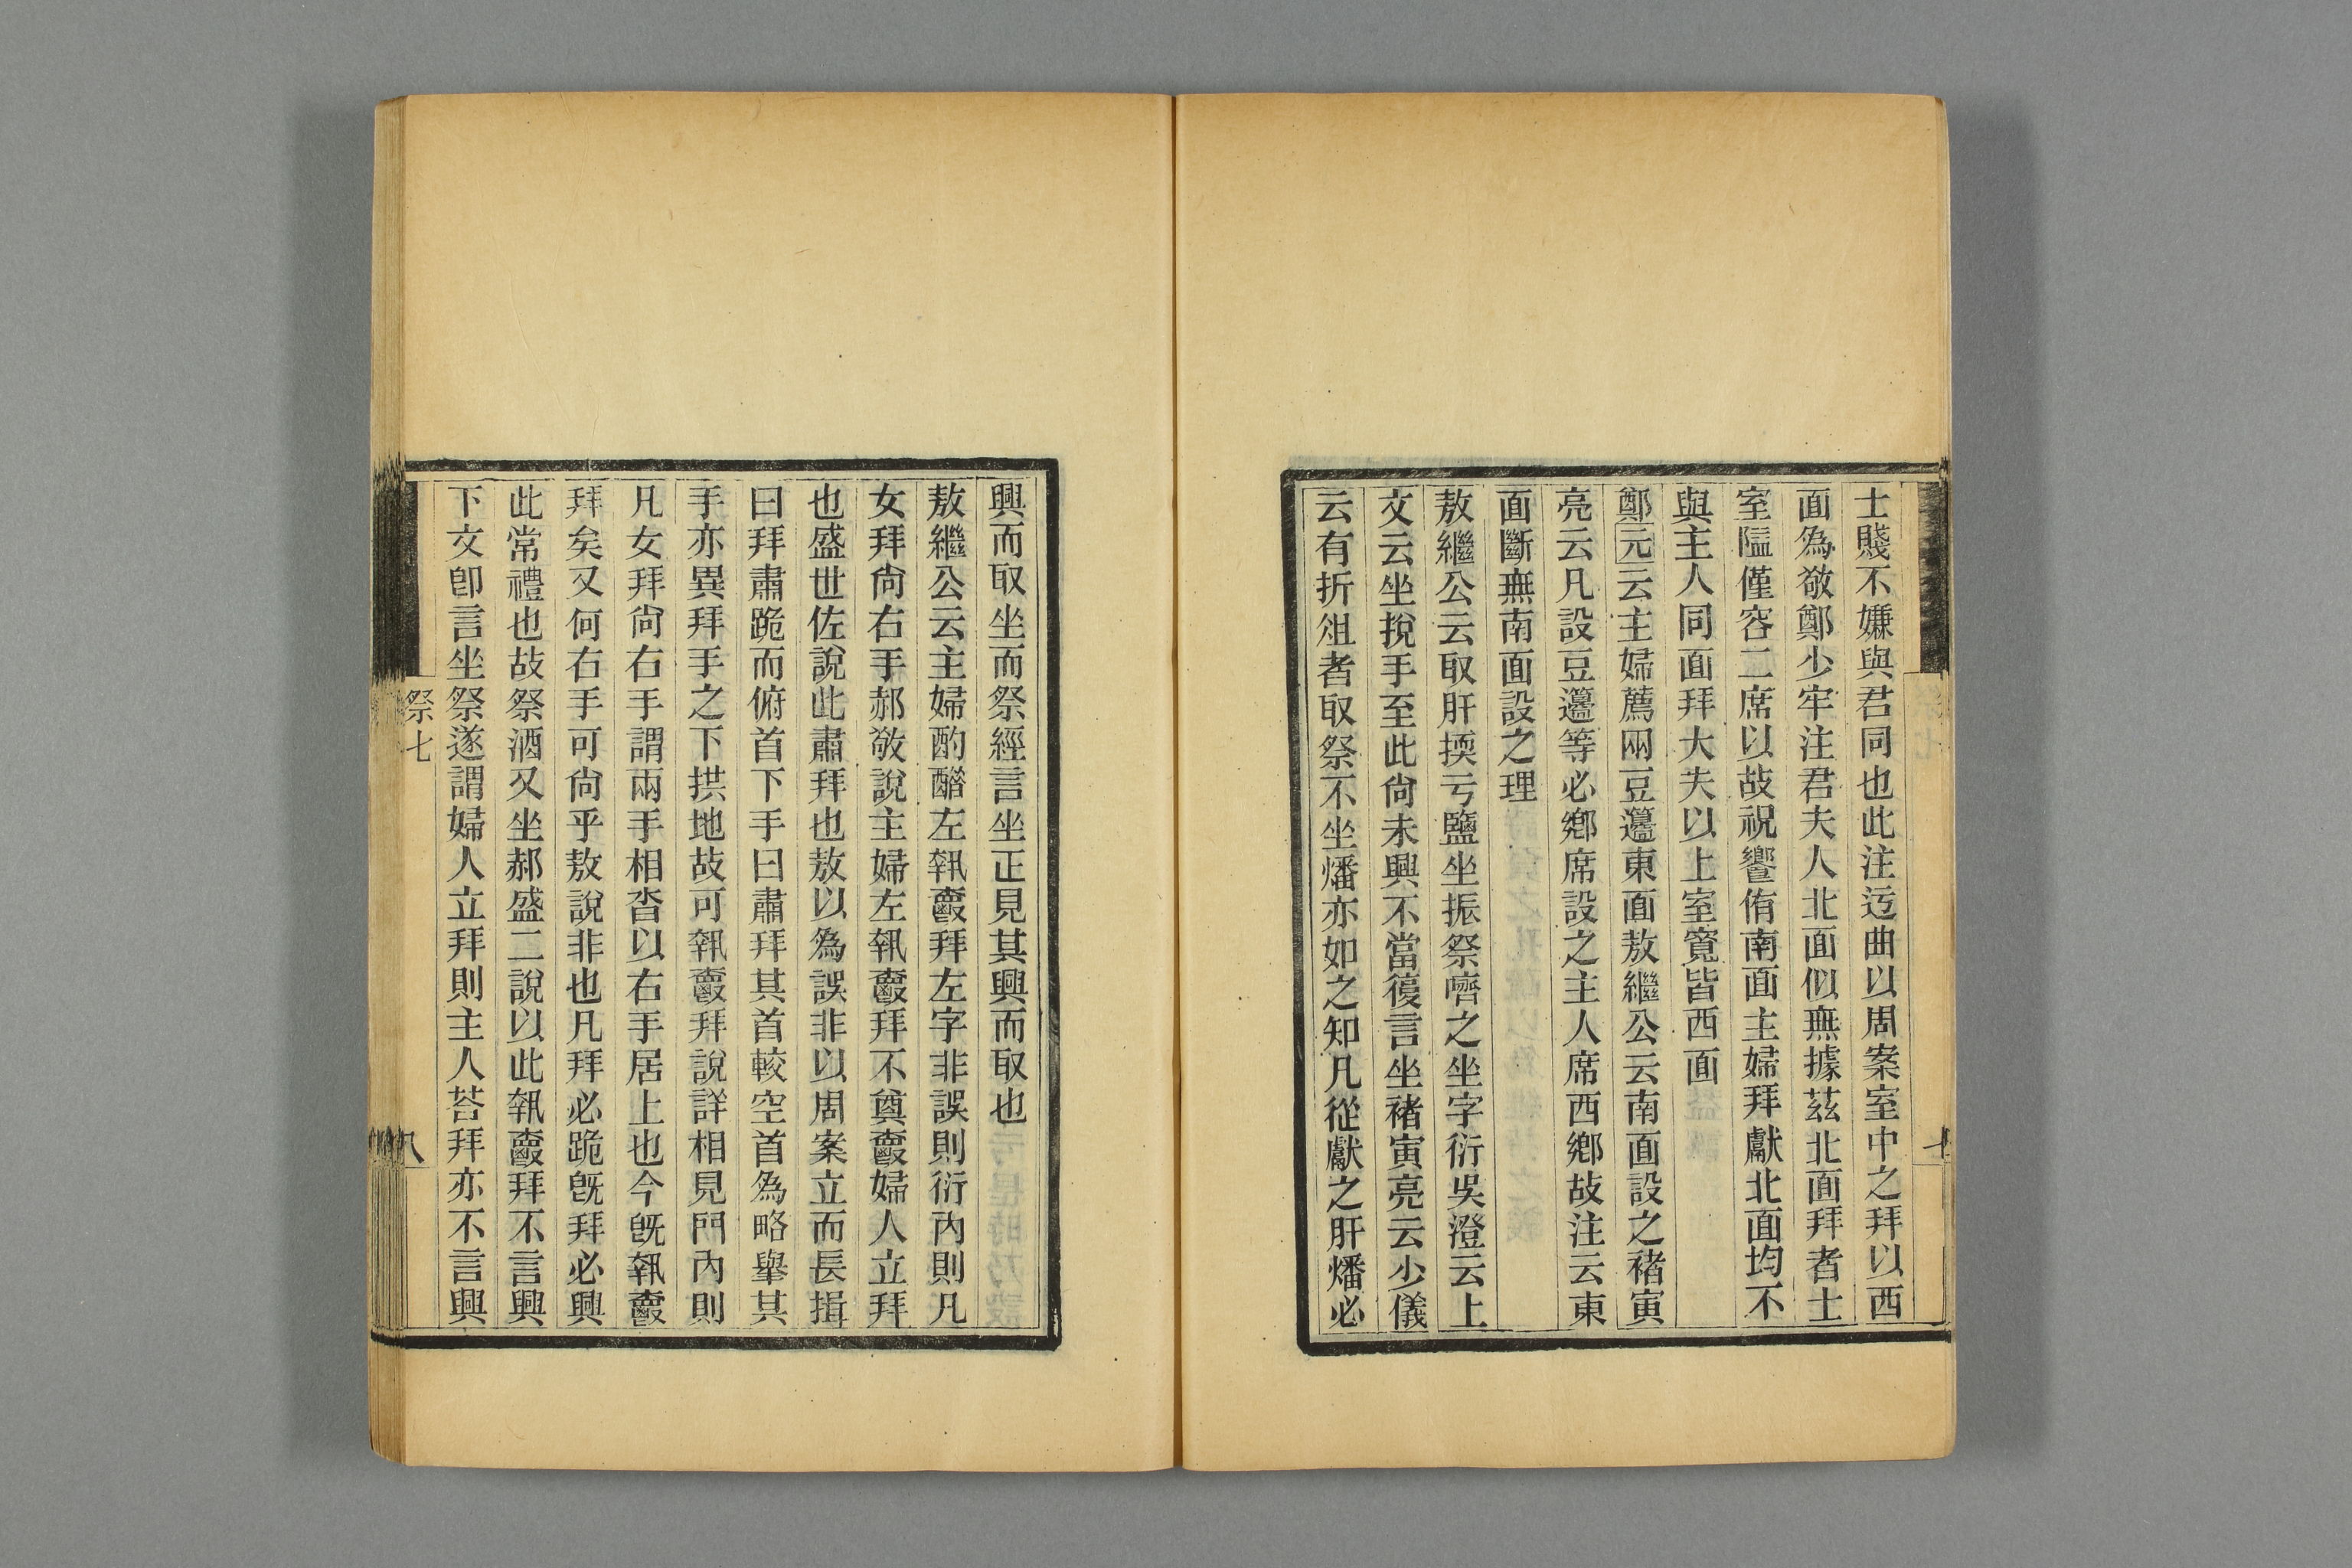 士賤不嫌與君同也此注迃曲以周案室中之拜以西
面為敬鄭少牢注君夫人北面似無據茲北面拜者士
室隘僅容二席以故祝饗侑南面主婦拜獻北面均不
與主人同面拜大夫以上室寬皆西面
鄭元云主婦薦兩豆籩東面敖繼公云南面設之褚寅
亮云凡設豆籩等必鄉席設之主人席西鄉故注云東
面斷無南面設之理
敖繼公云取肝擩亏鹽坐振祭嚌之坐字衍吳澄云上
文云坐挩手至此尙未興不當復言坐褚寅亮云少儀
云有折俎者取祭不坐燔亦如之知凡從獻之肝燔必
興而取坐而祭經言坐正見其興而取也
敖繼公云主婦酌醋左執爵拜左字非誤則衍內則凡
女拜尙右手郝敬說主婦左執爵拜不奠爵婦人立拜
也盛世佐說此肅拜也敖以為誤非以周案立而長揖
曰拜肅跪而俯首下手曰肅拜其首較空首為略舉其
手亦異拜手之下拱地故可執爵拜說詳相見門內則
凡女拜尙右手謂兩手相沓以右手居上也今旣執爵
拜矣又何右手可尙乎敖說非也凡拜必跪旣拜必興
此常禮也故祭酒又坐郝盛二說以此執爵拜不言興
下文卽言坐祭遂謂婦人立拜則主人荅拜亦不言興
祭七
八